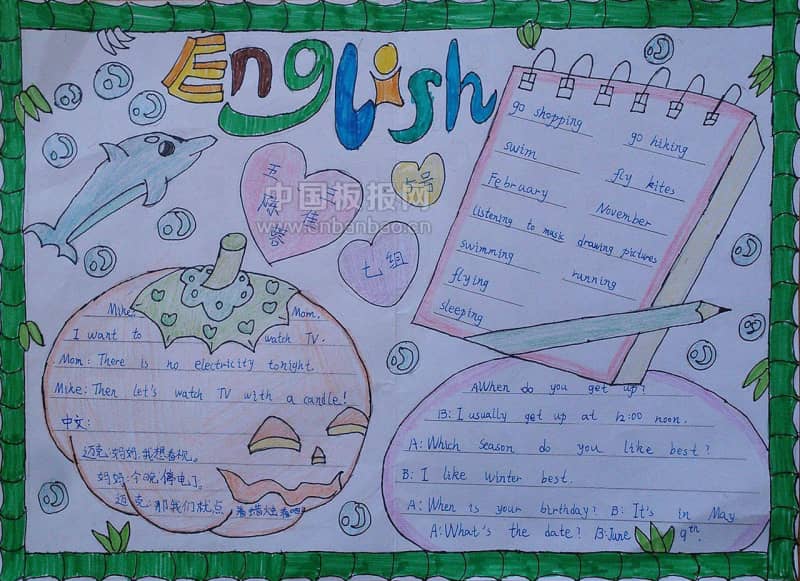 English
中国板报网
www.cnbanbao.cn
七组
go shopping
go hiking
swim
fly kites
February
November
listening to music
drawing pictures
swimming
running
flying
sleeping
Mike: Mom.
I want to watch TV.
Mom: There is no electricity tonight.
Mike: Then let's watch TV with a candle!
中文:
迈克:妈妈,我想看视。
妈妈:今晚停电了。
迈克:那我们就点着蜡烛看吧
A When do you get up?
B: I usually get up at 12:00 noon.
A: Which season do you like best?
B: I like winter best.
A: When is your birthday? B: It's in May
A: What's the date? B: June 9th.